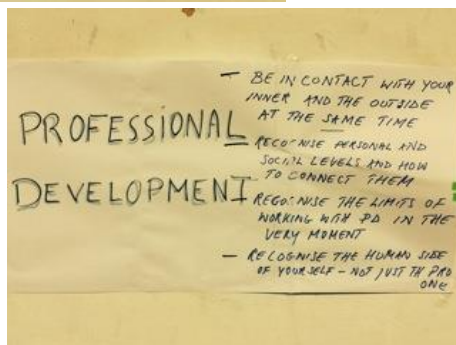 PROFESSIONAL
DEVELOPMENT
— BE IN CONTACT WITH YOUR
INNER AND THE OUTSIDE
AT THE SAME TIME
— RECOGNISE PERSONAL AND
SOCIAL LEVELS AND HOW
TO CONNECT THEM
— RECOGNISE THE LIMITS OF
WORKING WITH PD IN THE
VERY MOMENT
— RECOGNISE THE HUMAN SIDE
OF YOURSELF – NOT JUST TH PRO
ONE